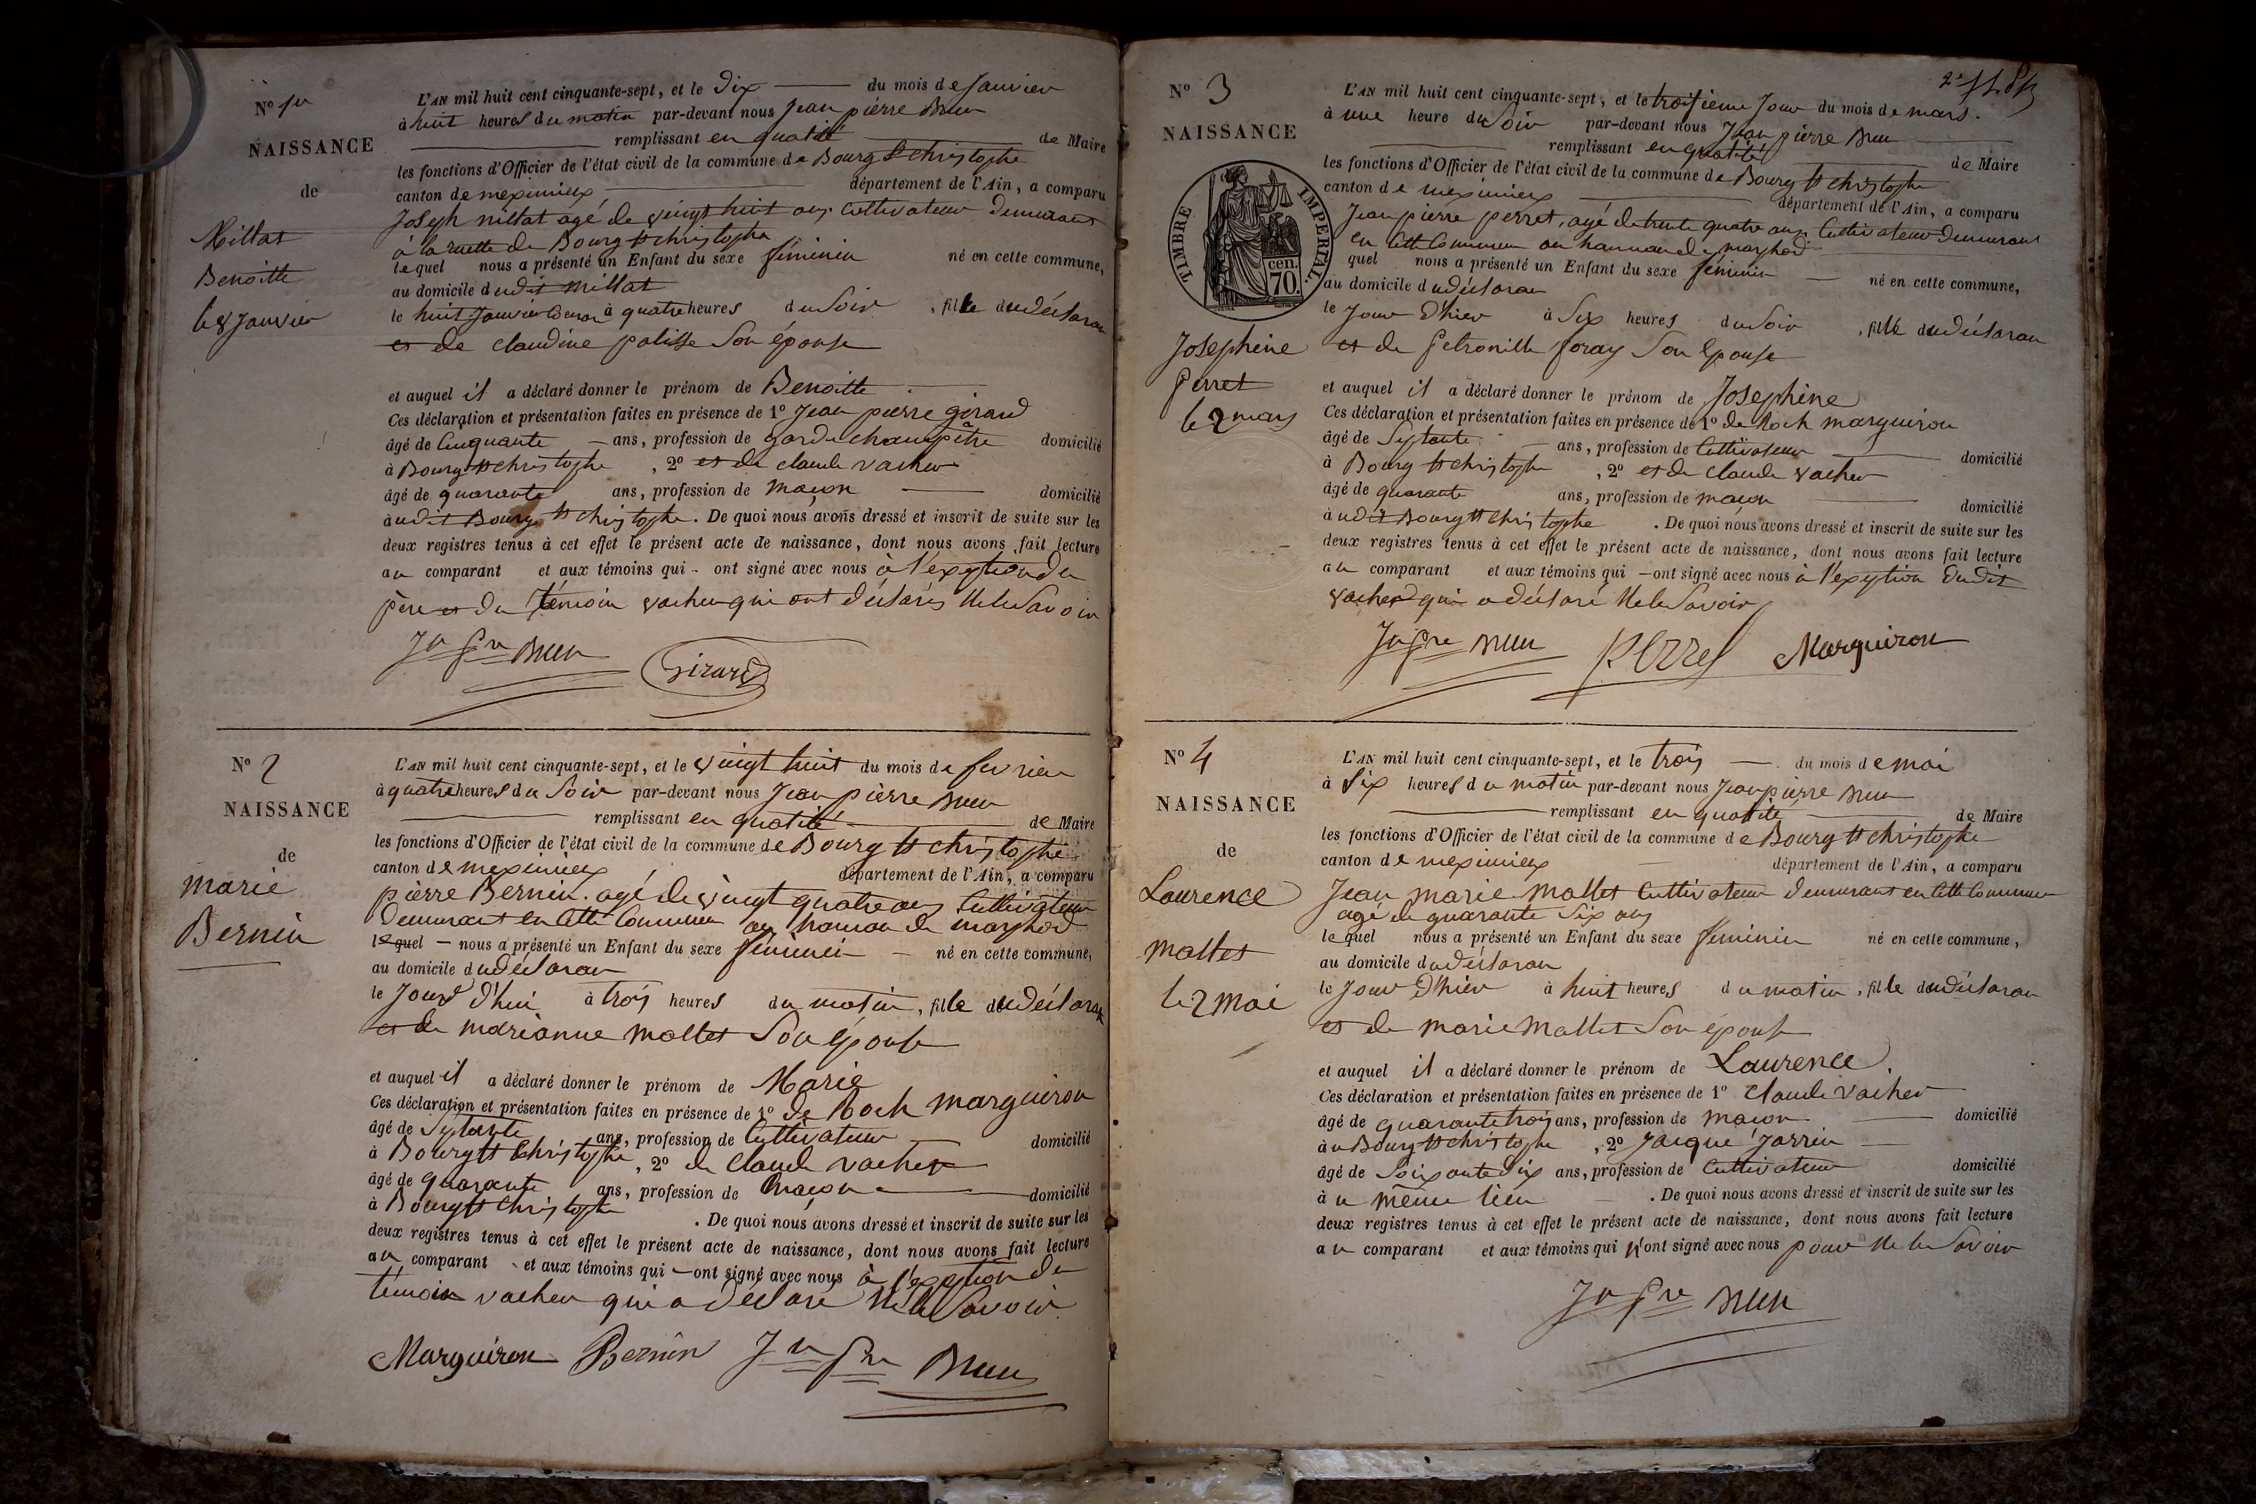 No 1er
NAISSANCE
de
Millat
Benoitte
le 8 Janvier
L'AN mil huit cent cinquante-sept, et le dix du mois de Janvier
à huit heures du matin par-devant nous Jean pierre Brun
remplissant en qualité de Maire
les fonctions d'Officier de l'état civil de la commune de Bourg St christophe
canton de meximieux département de l'Ain, a comparu
Joseph millat agé de vingt huit ans Cultivateur demeurant
à la ruette de Bourg St christophe
lequel nous a présenté un Enfant du sexe féminin né en cette commune,
au domicile dudit Millat
le huit Janvier à quatre heures du Soir, fille du déclarant
et de claudine polisse Son épouse
et auquel il a déclaré donner le prénom de Benoitte
Ces déclaration et présentation faites en présence de 1º Jean pierre girard
âgé de Cinquante ans, profession de garde champêtre domicilié
à Bourg St christophe, 2º et de claude vacher
âgé de quarante ans, profession de maçon domicilié
audit Bourg St christophe. De quoi nous avons dressé et inscrit de suite sur les
deux registres tenus à cet effet le présent acte de naissance, dont nous avons fait lecture
au comparant et aux témoins qui ont signé avec nous à l'exeption du
père et du témoin vacher qui ont déclarés Ne le Savoir
Jn Pre Brun Girard
No 2
NAISSANCE
de
marie
Bernin
L'AN mil huit cent cinquante-sept, et le vingt huit du mois de fevrier
à quatre heures du Soir par-devant nous Jean pierre Brun
remplissant en qualité de Maire
les fonctions d'Officier de l'état civil de la commune de Bourg St christophe
canton de meximieux département de l'Ain, a comparu
pierre Bernin agé de vingt quatre ans Cultivateur
demeurant en cette Commune au hameau de marfhod
lequel nous a présenté un Enfant du sexe féminin né en cette commune,
au domicile du déclarant
le Jourd'hui à trois heures du matin, fille du déclarant
et de marianne mollet Son épouse
et auquel il a déclaré donner le prénom de Marie
Ces déclaration et présentation faites en présence de 1º de Roch marguiron
âgé de Septante ans, profession de Cultivateur domicilié
à Bourg St Christophe, 2º de Claude vacher
âgé de quarante ans, profession de maçon domicilié
à Bourg St Christophe. De quoi nous avons dressé et inscrit de suite sur les
deux registres tenus à cet effet le présent acte de naissance, dont nous avons fait lecture
au comparant et aux témoins qui ont signé avec nous à l'exeption du
témoin vacher qui a déclaré Ne le Savoir
Marguiron Bernin Jn Pre Brun
No 3
NAISSANCE
TIMBRE IMPERIAL.
cen.
70.
Josephine
perret
le 2 mars
L'AN mil huit cent cinquante-sept, et le troisieme Jour du mois de mars.
à une heure du Soir par-devant nous Jean pierre Brun
remplissant en qualité de Maire
les fonctions d'Officier de l'état civil de la commune de Bourg St christophe
canton de meximieux département de l'Ain, a comparu
Jean pierre perret, agé de trente quatre ans Cultivateur demeurant
en cette Commune au hameau de marfhod
quel nous a présenté un Enfant du sexe féminin né en cette commune,
au domicile du déclarant
le Jour d'hier à Six heures du Soir, fille du déclarant
et de petronille foray Son épouse
et auquel il a déclaré donner le prénom de Josephine
Ces déclaration et présentation faites en présence de 1º de Roch marguiron
âgé de Septante ans, profession de Cultivateur domicilié
à Bourg St christophe, 2º et de Claude vacher
âgé de quarante ans, profession de maçon domicilié
audit Bourg St christophe. De quoi nous avons dressé et inscrit de suite sur les
deux registres tenus à cet effet le présent acte de naissance, dont nous avons fait lecture
au comparant et aux témoins qui ont signé avec nous à l'exeption dudit
vacher qui a déclaré Ne le Savoir
Jn Pre Brun Perret Marguiron
No 4
NAISSANCE
de
Laurence
mollet
le 2 mai
L'AN mil huit cent cinquante-sept, et le trois du mois de mai
à Six heures du matin par-devant nous Jean pierre Brun
remplissant en qualité de Maire
les fonctions d'Officier de l'état civil de la commune de Bourg St christophe
canton de meximieux département de l'Ain, a comparu
Jean marie mollet Cultivateur demeurant en cette Commune
agé de quarante Six ans
lequel nous a présenté un Enfant du sexe féminin né en cette commune,
au domicile du déclarant
le Jour d'hier à huit heures du matin, fille du déclarant
et de marie Mollet Son épouse
et auquel il a déclaré donner le prénom de Laurence
Ces déclaration et présentation faites en présence de 1º claude vacher
âgé de quarante trois ans, profession de maçon domicilié
au Bourg St christophe, 2º Jacque Jarrin
âgé de Soixante dix ans, profession de Cultivateur domicilié
au même lieu. De quoi nous avons dressé et inscrit de suite sur les
deux registres tenus à cet effet le présent acte de naissance, dont nous avons fait lecture
au comparant et aux témoins qui n'ont signé avec nous pour Ne le Savoir
Jn Pre Brun